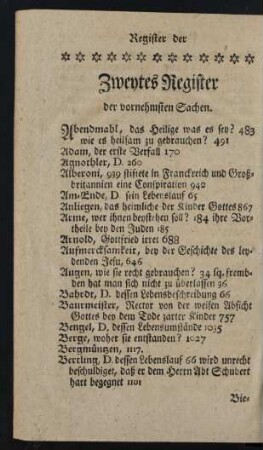 Register der
Zweytes Register
der vornehmsten Sachen.
Abendmahl, das Heilige was es sey? 483
wie es heilsam zu gebrauchen? 491
Adam, der erste Verfall 170
Agnothler, D. 260
Alberoni, 939 stifftete in Franckreich und Groß-
britannien eine Conspiration 940
Am-Ende, D. sein Lebenslauf 65
Anliegen, das heimliche der Kinder Gottes 867
Arme, wer ihnen beystehen soll? 184 ihre Vor-
theile bey den Juden 185
Arnold, Gottfried irret 688
Aufmercksamkeit, bey der Geschichte des ley-
denden Jesu, 646
Augen, wie sie recht gebrauchen? 34 sq. fremb-
den hat man sich nicht zu überlassen 36
Bahrdt, D. dessen Lebensbeschreibung 66
Baurmeister, Rector von der weisen Absicht
Gottes bey dem Tode zarter Kinder 757
Bengel, D. dessen Lebensumstände 1035
Berge, woher sie entstanden? 1027
Bergmüntzen, 1117.
Bertling, D. dessen Lebenslauf 66 wird unrecht
beschuldiget, daß er dem Herrn Abt Schubert
hart begegnet 1101
Bie-